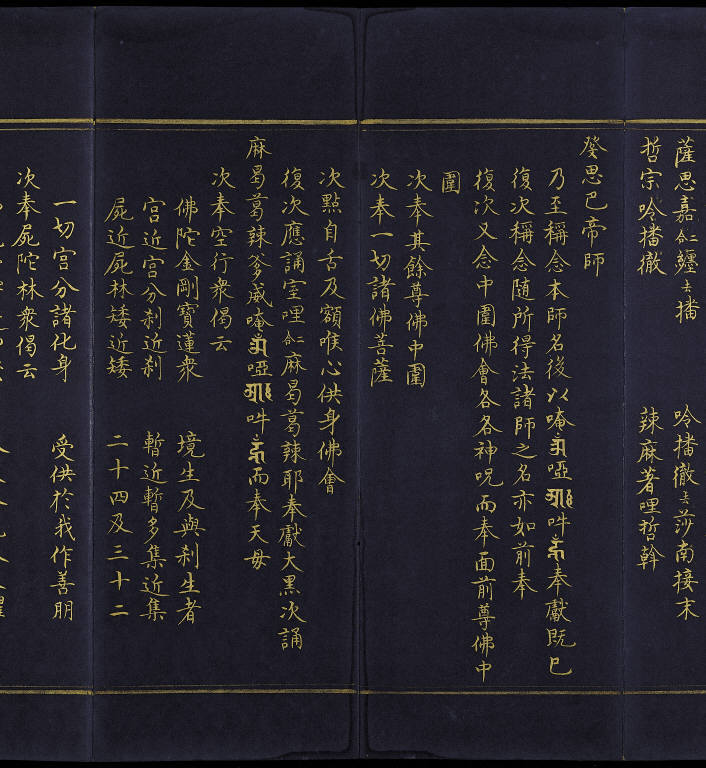 薩思嘉㘕纏去播 唥播徹去莎南接末
哲宗唥播徹 辣麻著哩哲斡
癸思巴帝師
乃至稱念本師名後以唵ༀ啞ཨཱཿ吽ཧཱུྃ奉獻既已
復次稱念隨所得法諸師之名亦如前奉
復次又念中圍佛會各各神呪而奉面前尊佛中
圍
次奉其餘尊佛中圍
次奉一切諸佛菩薩
次點自舌及額唯心供身佛會
復次應誦室哩麻曷葛辣耶奉獻大黑次誦
麻曷葛辣爹威唵ༀ啞ཨཱཿ吽ཧཱུྃ而奉天母
次奉空行衆偈云
佛陀金剛寶蓮衆 境生及與刹生者
宫近宫分刹近刹 暫近暫多集近集
屍近屍林矮近矮 二十四及三十二
一切宫分諸化身 受供於我作善朋
次奉屍陀林衆偈云